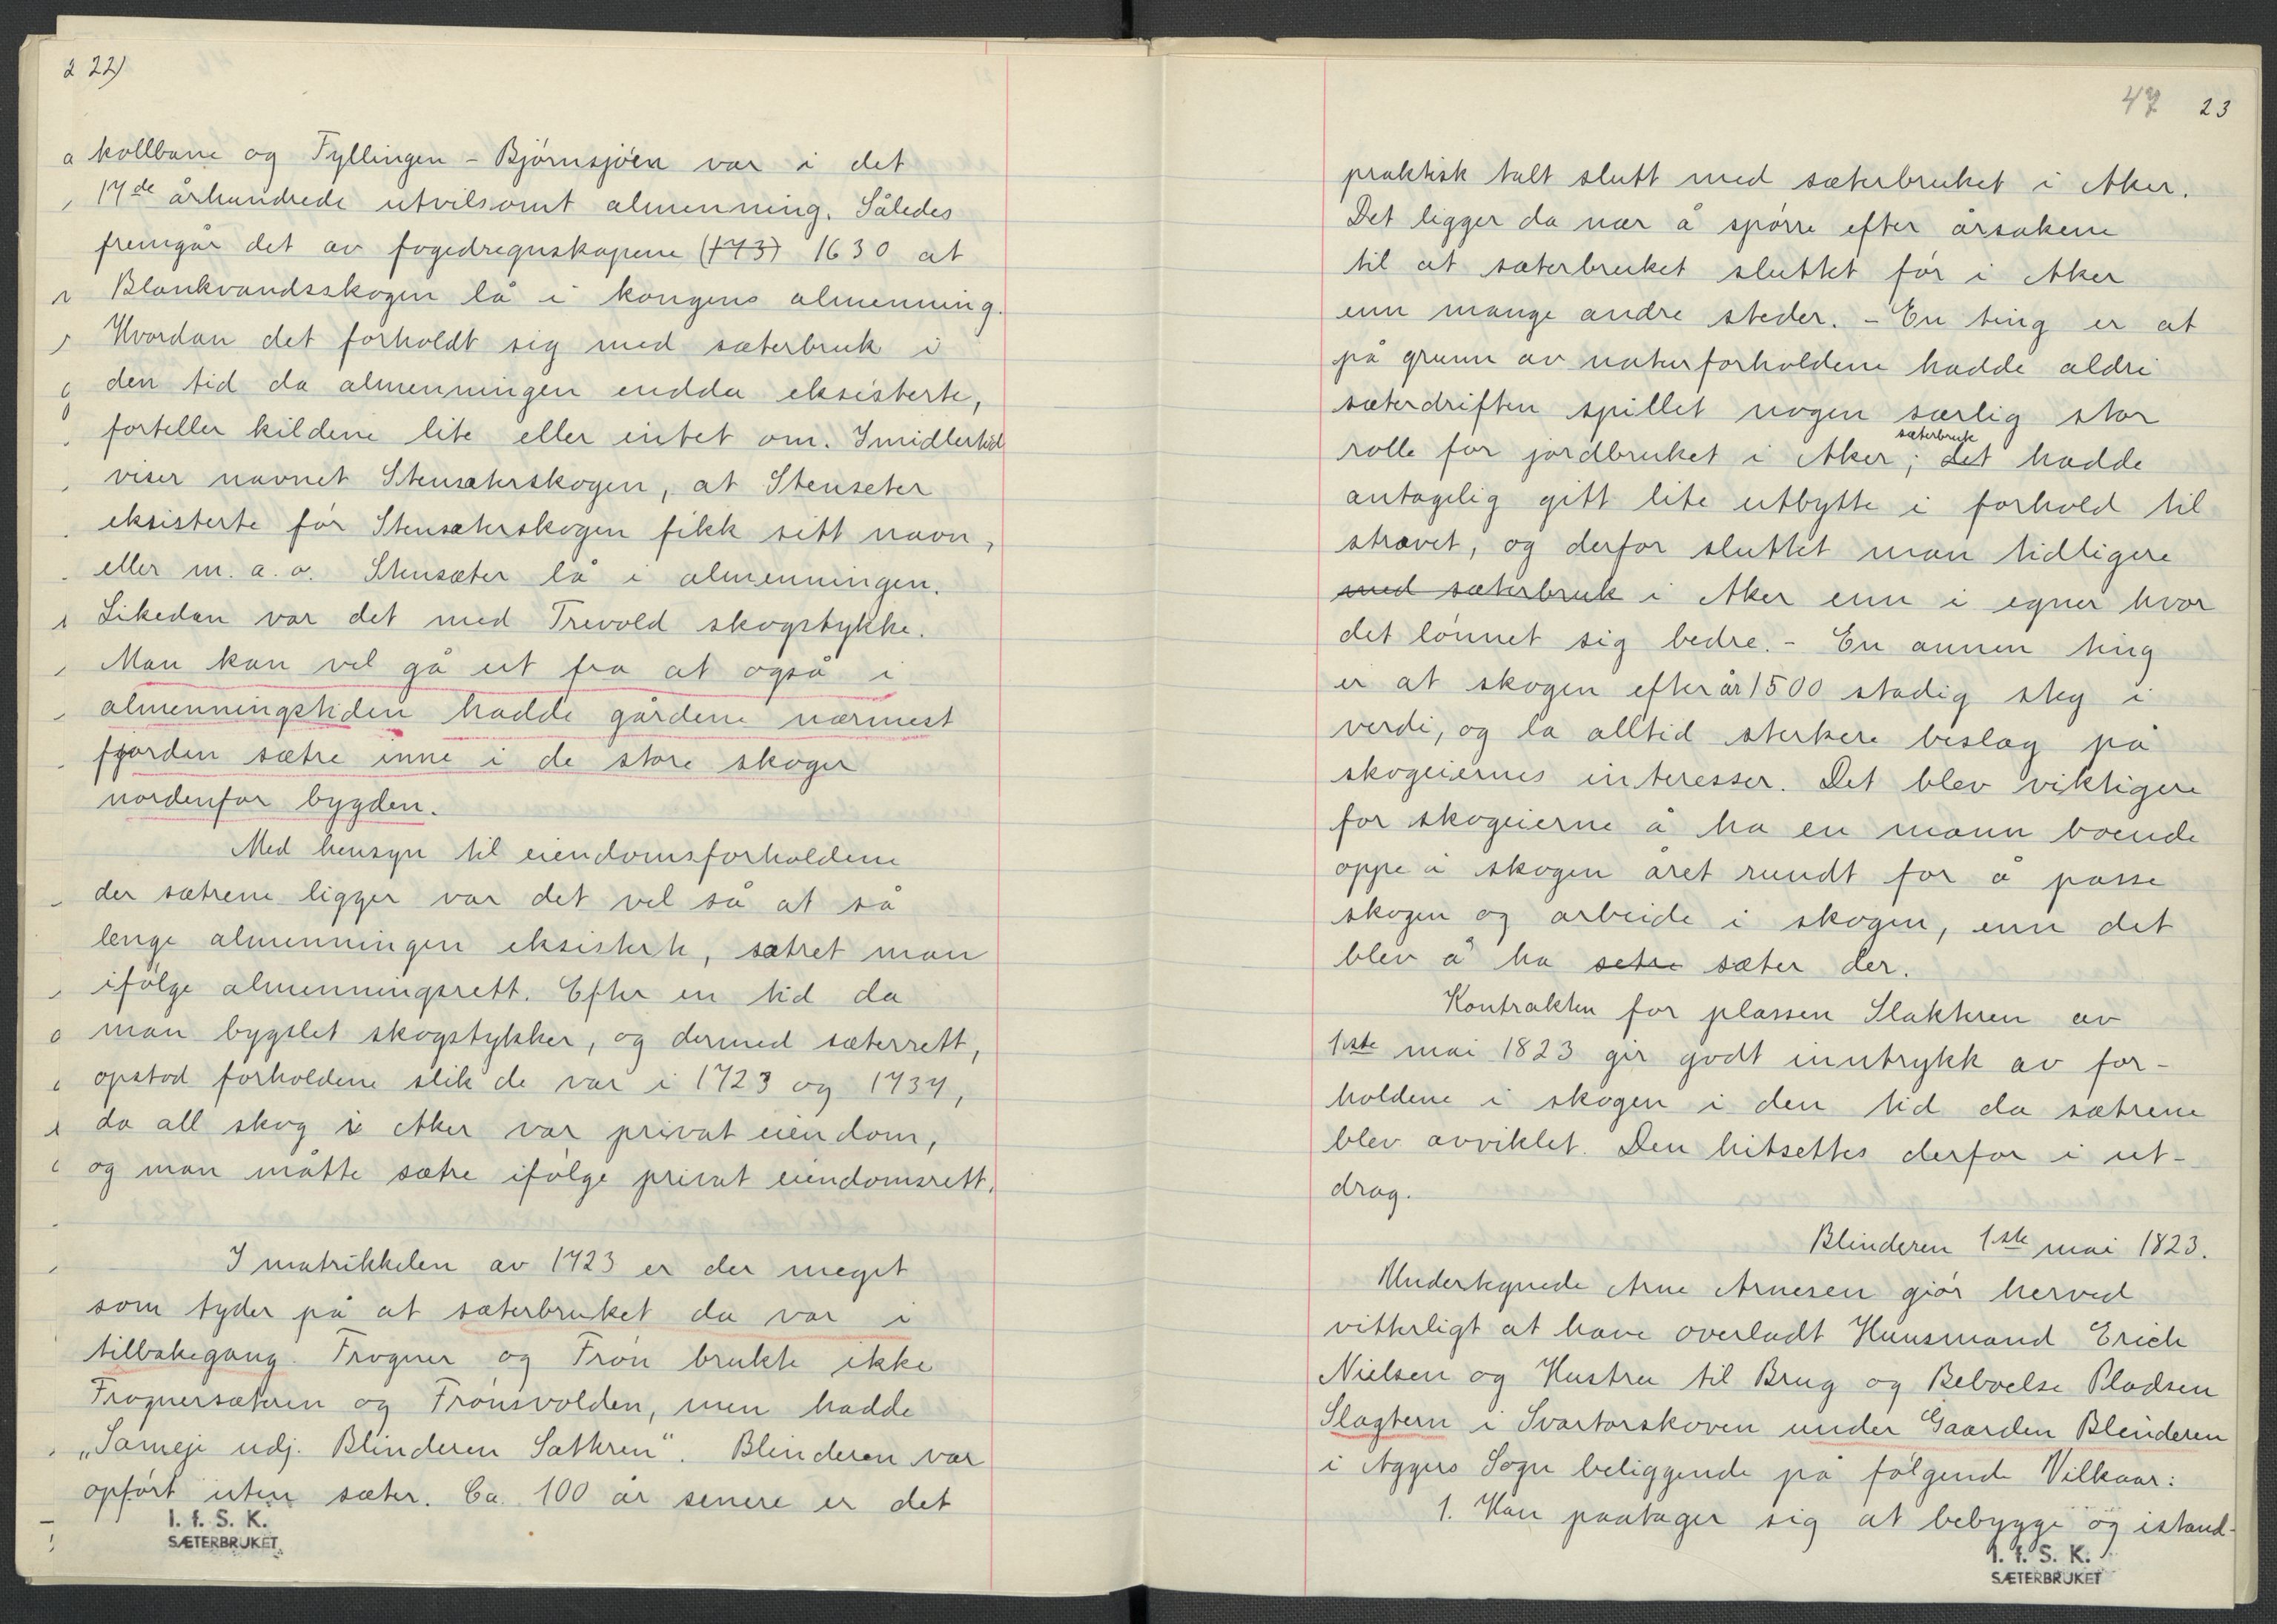 22)
kollbane og Tyllingen - Bjørnsjøen var i det
17de århundrede utvilsomt almenning. Således
fremgår det av fogedregnskapene (173) 1630 at
Blankvandsskogen lå i kongens almenning.
Hvordan det forholdt sig med sæterbruk i
den tid da almenningen endda eksisterte,
forteller kildene lite eller intet om. Imidlertid
viser navnet Stensæterskogen, at Stenseter
eksisterte før Stensæterskogen fikk sitt navn,
eller m. a. o. Stensæter lå i almenningen.
Likedan var det med Trevold skogstykke.
Man kan vel gå ut fra at også i
almenningstiden hadde gårdene nærmest
fjorden sætre inne i de store skoger
nordenfor bygden.
Med hensyn til eiendomsforholdene
der sætrene ligger var det vel så at så
lenge almenningen eksisterte, sætret man
ifølge almenningsrett. Efter en tid da
man bygslet skogstykker, og dermed sæterrett,
opstod forholdene slik de var i 1723 og 1737,
da all skog i Aker var privat eiendom,
og man måtte sætre ifølge privat eiendomsrett.
I matrikkelen av 1723 er der meget
som tyder på at sæterbruket da var i
tilbakegang. Frogner og Frøn brukte ikke
Frognersæteren og Frønsvolden, men hadde
„Sameje udj. Blinderen Sæthren". Blinderen var
opført uten sæter. Ca. 100 år senere er det
I. f. S. K.
SÆTERBRUKET
47 23
praktisk talt slutt med sæterbruket i Aker.
Det ligger da nær å spørre efter årsakene
til at sæterbruket sluttet før i Aker
enn mange andre steder. - En ting er at
på grunn av naturforholdene hadde aldri
sæterdriften spillet nogen særlig stor
rolle for jordbruket i Aker; det sæterbruk hadde
antagelig gitt lite utbytte i forhold til
strævet, og derfor sluttet man tidligere
med sæterbruk i Aker enn i egner hvor
det lønnet sig bedre. - En annen ting
er at skogen efter år 1500 stadig steg i
verdi, og la alltid sterkere beslag på
skogeiernes interesser. Det blev viktigere
for skogeierne å ha en mann boende
oppe i skogen året rundt for å passe
skogen og arbeide i skogen, enn det
blev å ha setre sæter der.
Kontrakten for plassen Slakteren av
1ste mai 1823 gir godt inntrykk av for-
holdene i skogen i den tid da sætrene
blev avviklet. Den hitsettes derfor i ut-
drag.
Blinderen 1ste mai 1823.
Undertegnede Arne Arnesen giør herved
vitterligt at have overladt Huusmand Erich
Nielsen og Hustru til Brug og Beboelse Pladsen
Slagtern i Svartorskoven under Gaarden Blinderen
i Aggers Sogn beliggende på følgende Vilkaar:
1. Han paatager sig at bebygge og istand-
I. f. S. K.
SÆTERBRUKET